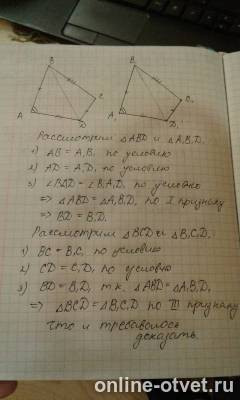 B B₁
C C₁
A D A₁ D₁
Рассмотрим △ABD и △A₁B₁D₁
1) AB = A₁B₁ по условию
2) AD = A₁D₁ по условию
3) ∠BAD = ∠B₁A₁D₁ по условию
⇒ △ABD = △A₁B₁D₁ по I признаку
⇒ BD = B₁D₁
Рассмотрим △BCD и △B₁C₁D₁
1) BC = B₁C₁ по условию
2) CD = C₁D₁ по условию
3) BD = B₁D₁ т.к. △ABD = △A₁B₁D₁
⇒ △BCD = △B₁C₁D₁ по III признаку
что и требовалось
доказать.
online-otvet.ru